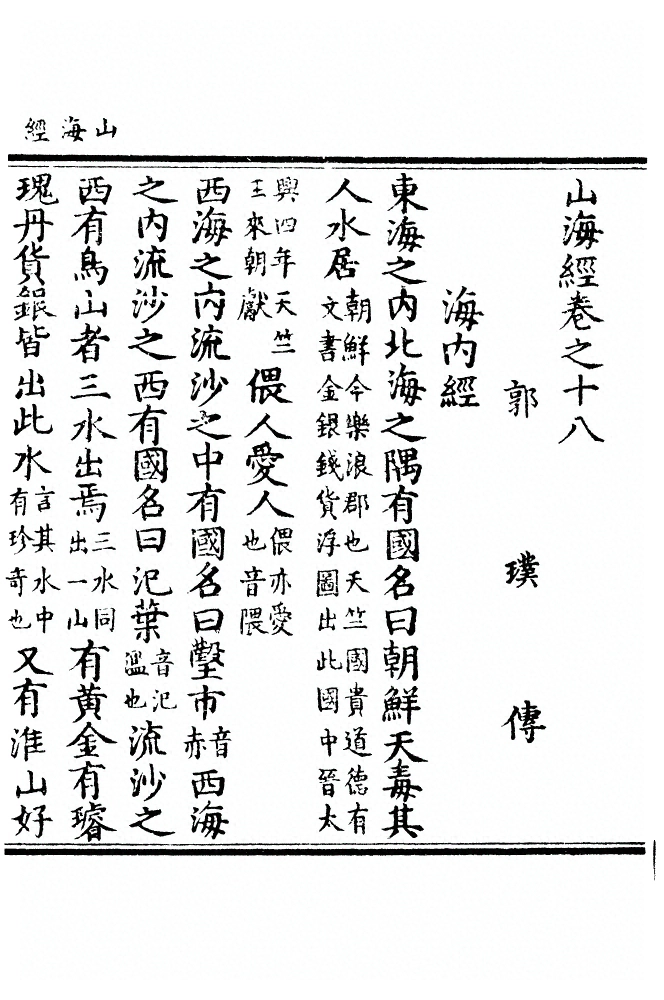 山海經
山海經卷之十八
郭璞傳
海内經
東海之内北海之隅有國名曰朝鮮天毒其
人水居朝鮮今樂浪郡也天竺國貴道德有文書金銀錢貨浮圖出此國中晉太
興四年天竺王來朝獻偎人愛人偎亦愛也音隈
西海之内流沙之中有國名曰壑市音赤西海
之内流沙之西有國名曰氾葉音氾濫也流沙之
西有鳥山者三水出焉三水同出一山有黄金有璿
瑰丹貨銀皆出此水言其水中有珍奇也又有淮山好